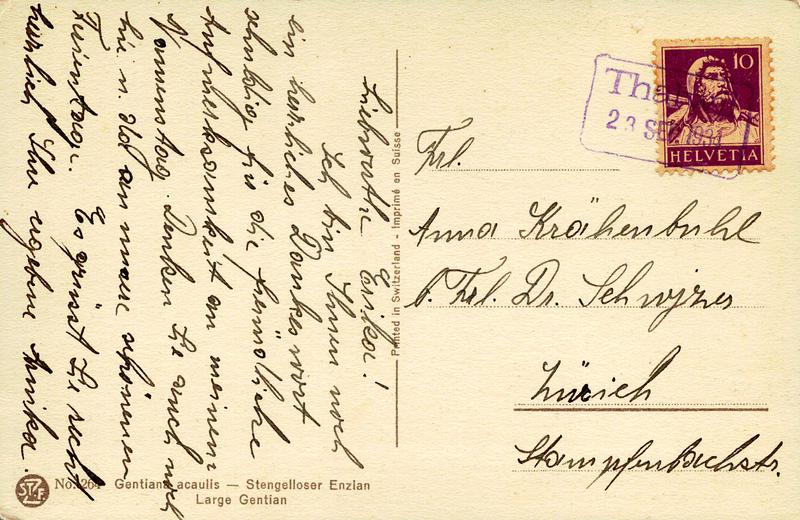 Liebwerthe Erika!
Ich bin Ihnen noch
ein herzliches Dankeswort
schuldig für die freundliche
Aufmerksamkeit an meinem
Namenstag. Denken Sie auch noch
hie u. da an unsere schönen
Ferientage. Es grüsst Sie recht
herzlich Ihre ergebene Annika.
Frl.
Anna Krähenbühl
b. Frl. Dr. Schwyzer
Zürich
Stampfenbachstr.
10
HELVETIA
Tha
23 SEP. 193
Printed in Switzerland - Imprimé en Suisse
STZF
No. 264 Gentiana acaulis — Stengelloser Enzian
Large Gentian